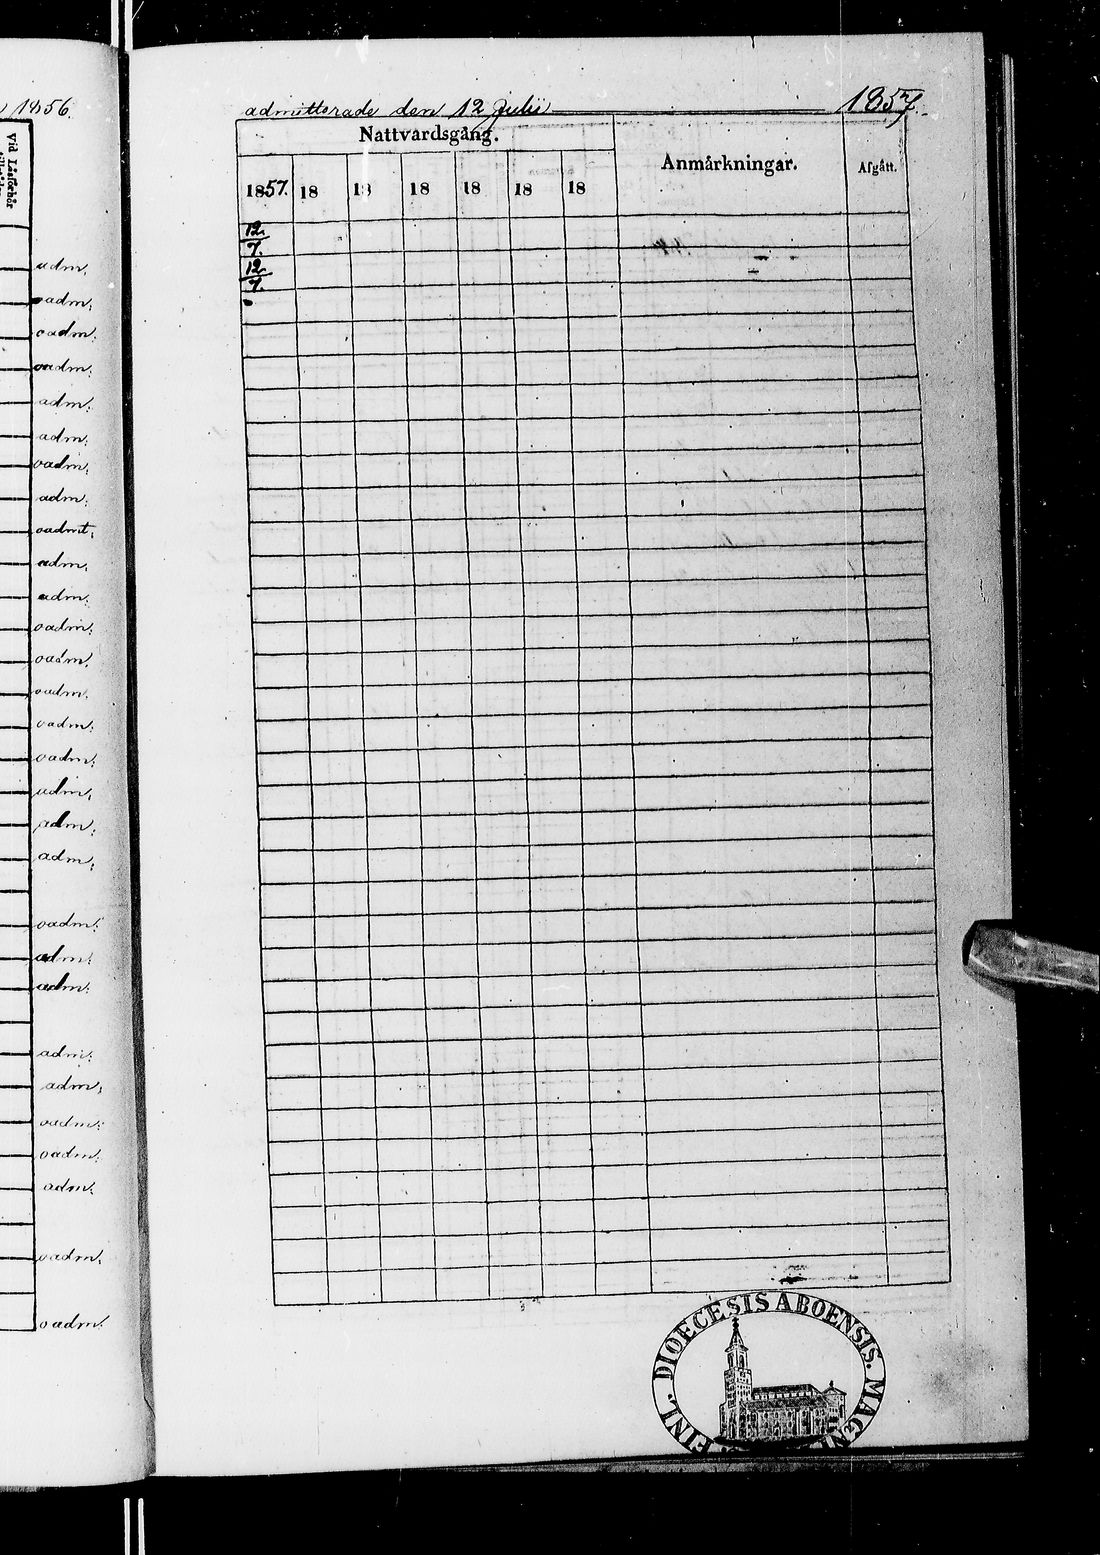 1856.
Vid Läsförhör
adm:
oadm:
oadm:
oadm:
adm:
adm:
oadm:
adm:
oadmt:
adm:
adm:
oadm:
oadm:
oadm:
oadm:
oadm:
adm:
adm:
adm:
oadm:
adm:
adm:
adm:
adm:
oadm:
oadm:
adm:
oadm:
oadm:
admitterade den 12 Julii 1857.
Nattvardsgång. Anmärkningar. Afgått.
1857. 18 18 18 18 18 18
12
7.
12
7.
DIOECESIS ABOENSIS. MAGNI FINL.